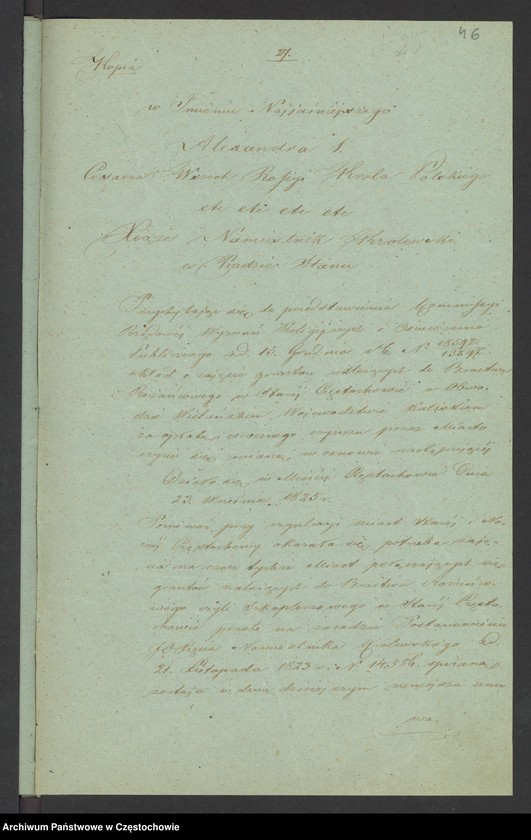 46
27.
Kopia
w Imieniu Najjaśniejszego
Alexandra I.
Cesarza Wszech Rossyi Króla Polskiego
etc etc etc etc
Xiąże Namiestnik Krolewski
w Radzie Stanu
Przychylając się do przedstawienia Kommissyi
Rządowej Wyznań Religijnych i Oświecenia
Publicznego z d. 15. Grudnia r. b. N
układ o zajęcie gruntów należących do Bractwa
Rożańcowego w Starej Częstochowie w Obwo-
dzie Wieluńskim Województwie Kaliskim
za opłatą rocznego czynszu przez Miasto
w osnowie następującej
Działo się w Mieście Częstochowie Dnia
23. Września 1825 r.
Ponieważ przy regulacyi miast Starej i No-
wej Częstochowy okazała się potrzeba zaję-
cia na rzecz tychże Miast
gruntów należących do Bractwa
czyli Szkaplerznego w Starej Często-
chowie przeto na zasadzie Postanowienia
JO Xięcia Namiestnika Królewskiego z d.
21. Listopada 1823 r. N 14.586. spisana
zostaje w dniu dzisiejszym niniejsza umo
wa
Archiwum Państwowe w Częstochowie